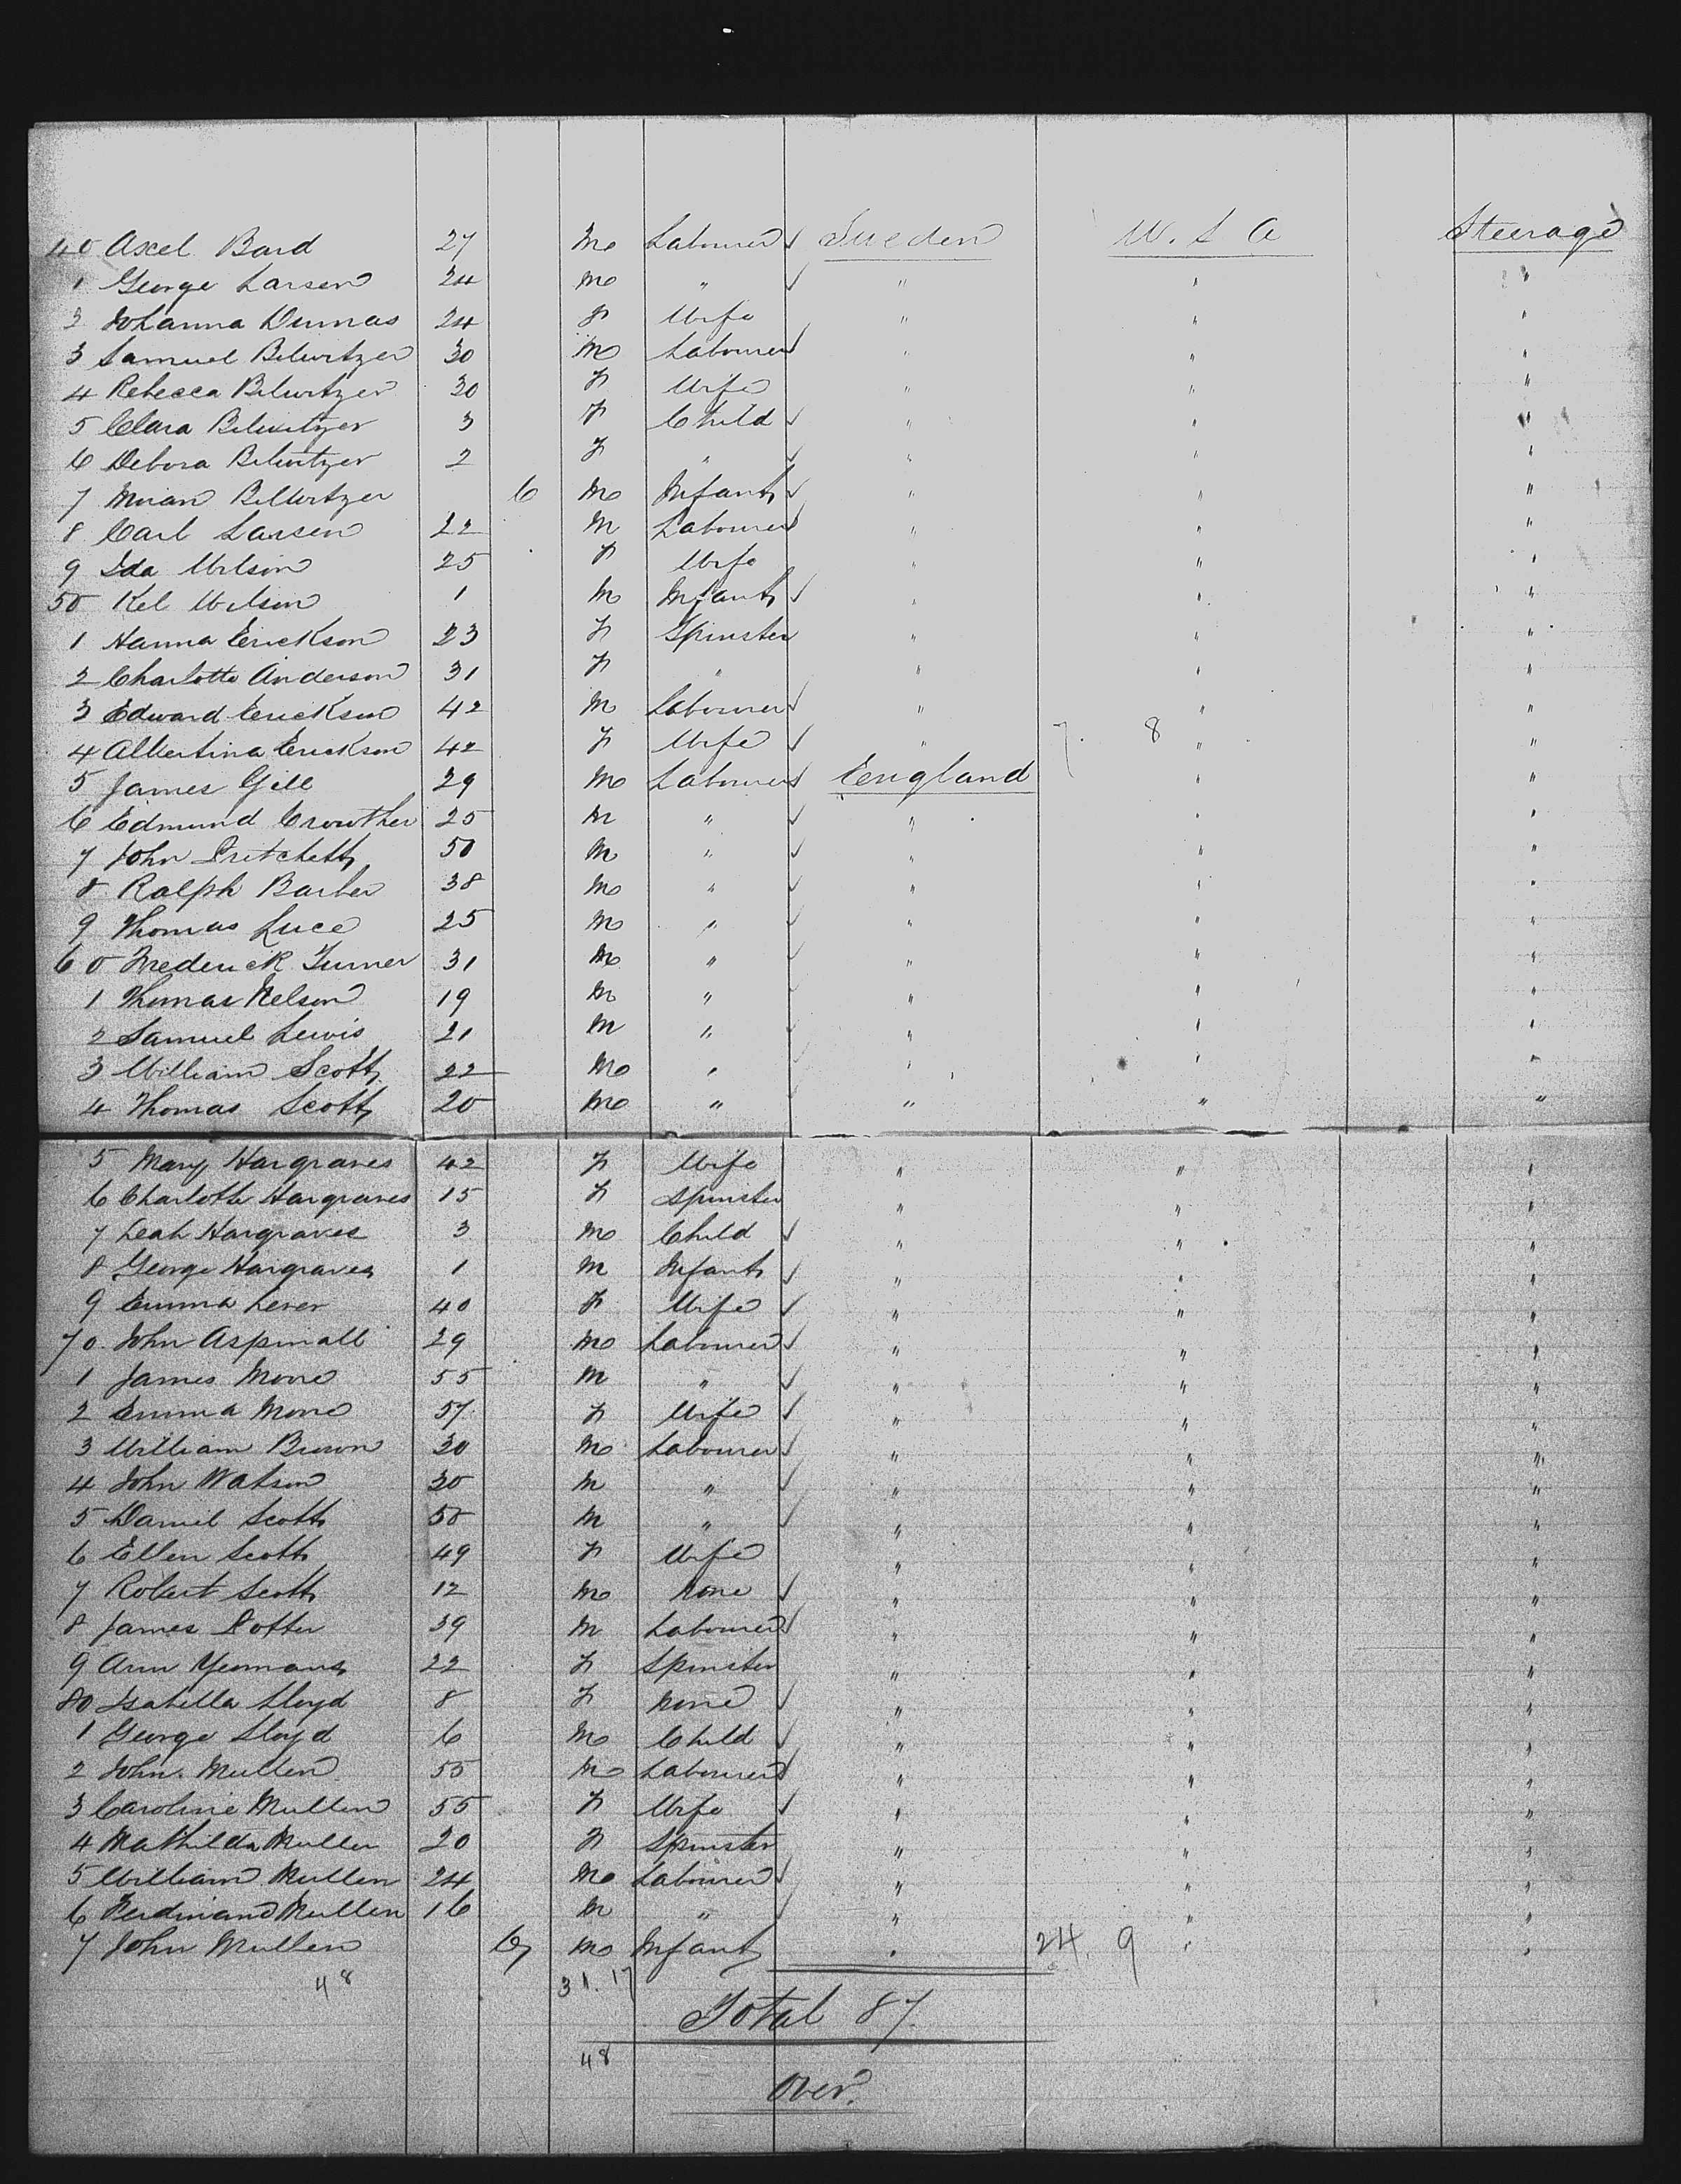 40 Axel Bard 27 M Labourer ✓ Sweden U.S.A Steerage
1 George Larsen 24 M " ✓ " " "
2 Johanna Dumas 24 F Wife " " "
3 Samuel Belwitzer 30 M Labourer ✓ " " "
4 Rebecca Belwitzer 30 F Wife " " "
5 Clara Belwitzer 3 F Child ✓ " " "
6 Debora Belwitzer 2 F " ✓ " " "
7 Belwitzer 6 M Infant ✓ " " "
8 Carl Larsen 22 M Labourer ✓ " " "
9 Ida Wilson 25 F Wife " " "
50 Kel Wilson 1 M Infant ✓ " " "
1 Hanna Erickson 23 F Spinster " " "
2 Charlotte Anderson 31 F " " " "
3 Edward Erickson 42 M Labourer ✓ " " "
4 Albertina Erickson 42 F Wife ✓ " 7. 8 " "
5 James Gill 29 M Labourer ✓ England " "
6 Edmund Crowther 25 M " ✓ " " "
7 John Pritchett 50 M " ✓ " " "
8 Ralph Barber 38 M " ✓ " " "
9 Thomas Luce 25 M " ✓ " " "
60 Frederick Turner 31 M " ✓ " " "
1 Thomas Nelson 19 M " ✓ " " "
2 Samuel Lewis 21 M " ✓ " " "
3 William Scott 22 M " ✓ " " "
4 Thomas Scott 20 M " ✓ " " "
5 Mary Hargraves 42 F Wife " " "
6 Charlotte Hargraves 15 F Spinster " " "
7 Leah Hargraves 3 M Child ✓ " " "
8 George Hargraves 1 M Infant ✓ " " "
9 Emma Lever 40 F Wife ✓ " " "
70. John Aspinall 29 M Labourer ✓ " " "
1 James Moore 55 M " ✓ " " "
2 Emma Moore 57 F Wife ✓ " " "
3 William Brown 30 M Labourer ✓ " " "
4 John Watson 30 M " ✓ " " "
5 Daniel Scott 50 M " ✓ " " "
6 Ellen Scott 49 F Wife " " "
7 Robert Scott 12 M none ✓ " " "
8 James Potter 39 M Labourer ✓ " " "
9 Ann Yeomans 22 F Spinster " " "
80 Isabella Lloyd 8 F none ✓ " " "
1 George Lloyd 6 M Child ✓ " " "
2 John Mullen 55 M Labourer ✓ " " "
3 Caroline Mullen 55 F Wife ✓ " " "
4 Mathilda Mullen 20 F Spinster " " "
5 William Mullen 24 M Labourer ✓ " " "
6 Ferdinand Mullen 16 M " ✓ " " "
7 John Mullen 6 M Infant " 24. 9 " "
48 31. 17
Total 87.
48
Over.